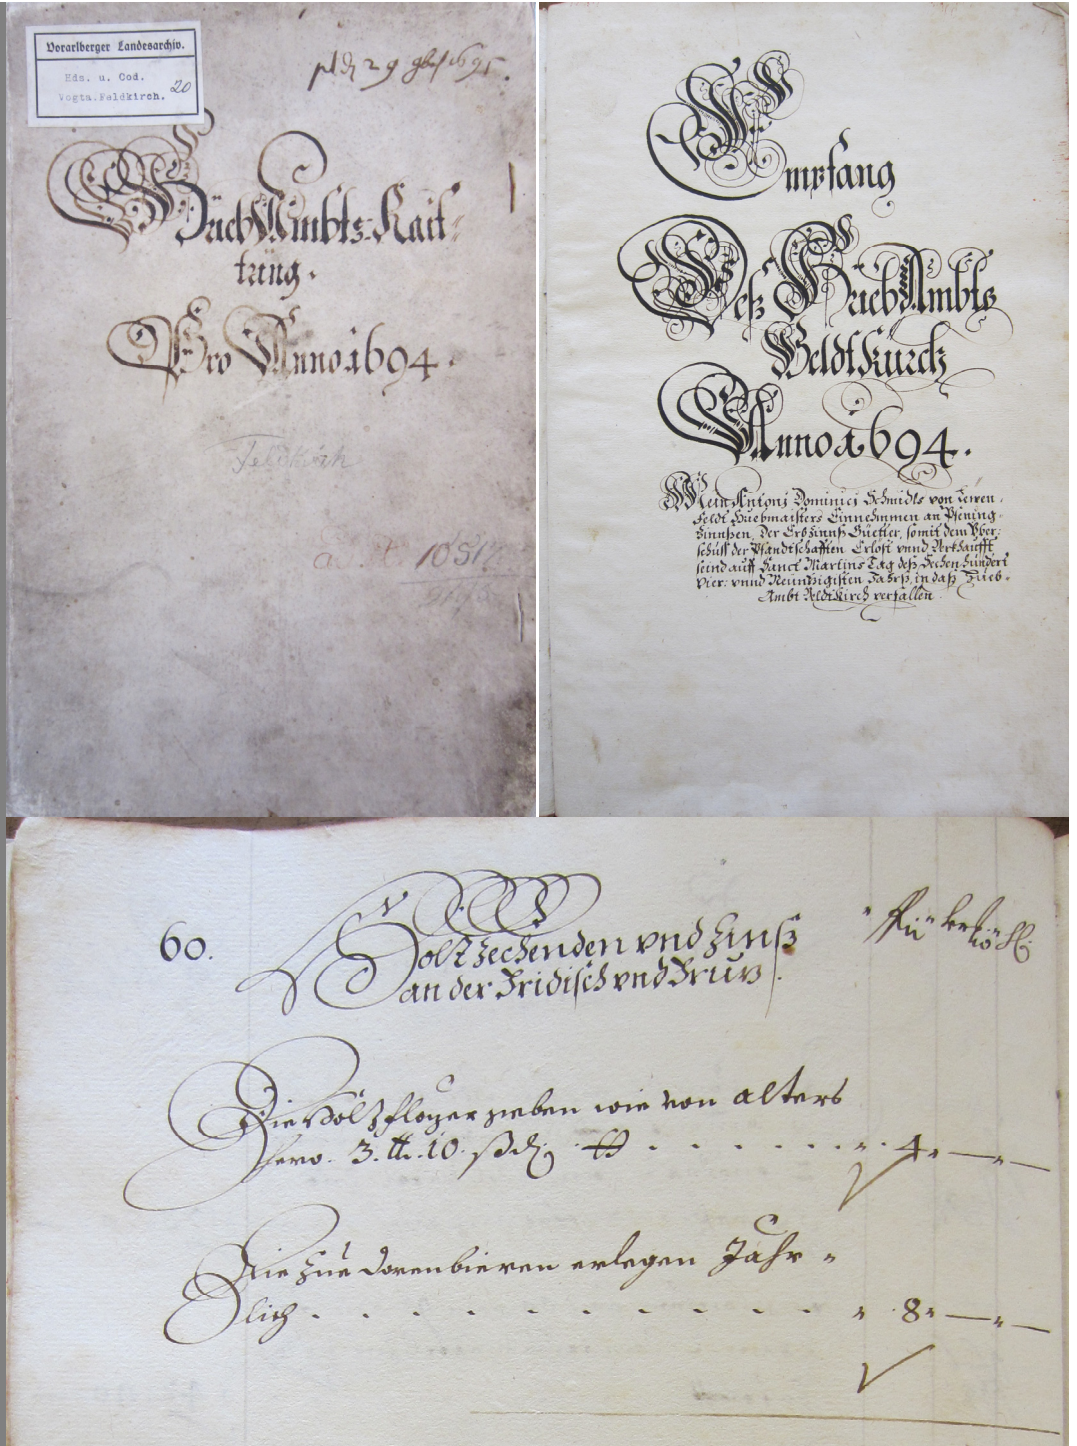 Vorarlberger Landesarchiv.
Hds. u. Cod.
Vogta.Feldkirch. 20
29 1695.
Hueb Ambts-Rait-
tung.
Pro Anno 1694.
Feldkirch
Empfang
Deß Hueb Ambts
Veldtkürch
Anno 1694.
Mein Antonj Dominicj Schmidts von
feldt Huebmaisters Einnehmmen an Pfening-
Zinnßen, Der Erbzinnß Güetter, somit dem Yber-
schuß der Pfandtschafften Erlößt vnnd Verkhaufft,
seind auff Sanct Martins Tag deß Sechenhundert
Vier: vnnd Neunzigisten Jahrß, in daß Hueb-
Ambt Veldtkirch verfallen.
60.
Holtzzechenden vnd Zinß
an der Fridisch vnd Fruz.
Die Höltzflozer geben wie von alters
hero. 3. lb. 10. ß d. 4. — —
Die zue Dorenbieren erlegen Jähr-
lich . . . . . . . . . . . 8. — —